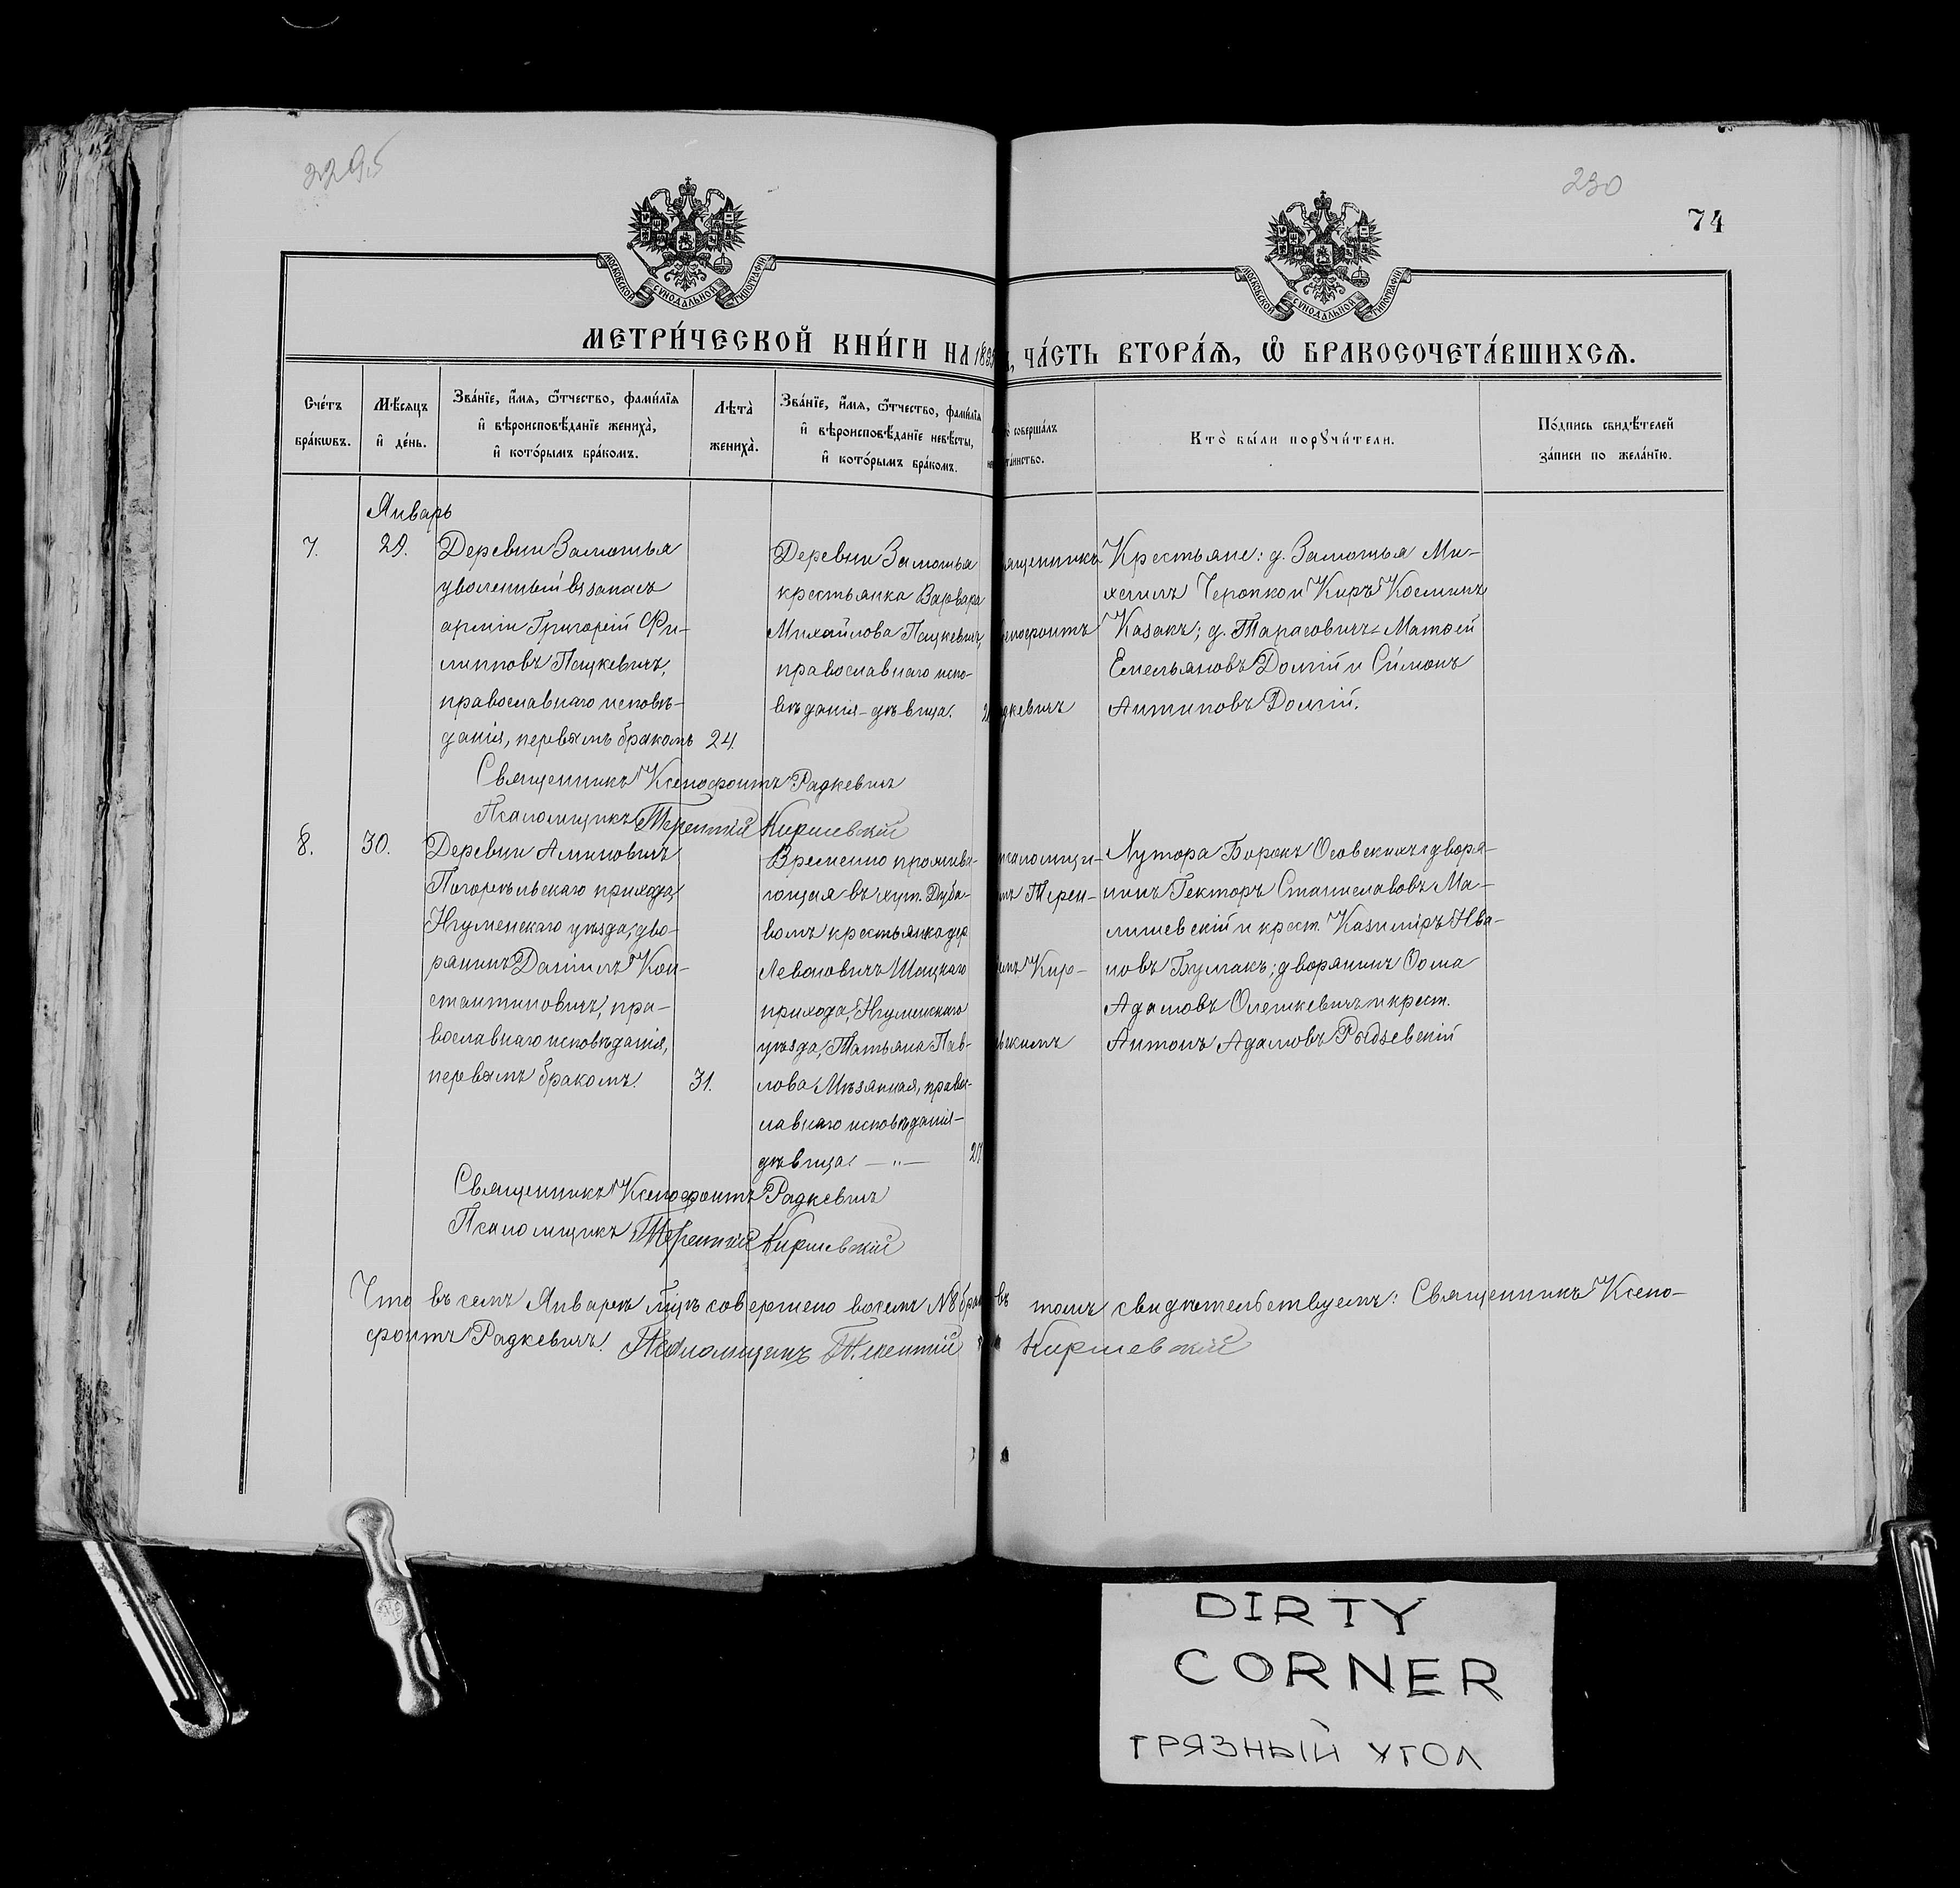 2295
230
74
МОСКОВСКОЙ СУНОДАЛЬНОЙ ТИПОГРАФІИ
МОСКОВСКОЙ СУНОДАЛЬНОЙ ТИПОГРАФІИ
МЕТРИ́ЧЕСКОЙ КНИ́ГИ НА 189 , ЧА́СТЬ ВТОРА́Ѧ, Ѡ҆ БРАКОСОЧЕТА́ВШИХСѦ.
Сче́тъ
бра́кѡвъ.
Мѣ́сяцъ
и҆ де́нь.
Зва́нїе, и҆́мя, ѻ҆́тчество, фами́лїя
и҆ вѣроисповѣ́данїе жениха̀,
и҆ кото́рымъ бра́комъ.
Лѣта̀
жениха̀.
Зва́нїе, и҆́мя, ѻ҆́тчество, фами́лїя
и҆ вѣроисповѣ́данїе невѣ́сты,
и҆ кото́рымъ бра́комъ.
соверша́лъ
та́инство.
Кто̀ бы́ли порꙋчи́тели.
По́дпись свидѣ́телей
за́писи по жела́нїю.
Январь
7.
29.
Деревни Замостья
уволенный въ запасъ
арміи Григорій Фи-
липповъ Пацкевичъ,
православнаго исповѣ-
данія, первымъ бракомъ
24.
Деревни Замостья
крестьянка Варвара
Михайлова Пацкевичъ,
православнаго испо-
вѣданія - дѣвица.
ященникъ
енофонтъ
дкевичъ
Крестьяне: д. Замостья Ми-
хаилъ Черопкои Киръ Косминъ
Казакъ; д. Тарасовичъ Матѳей
Емельяновъ Долгій и Симонъ
Антиповъ Долгій.
Священникъ Ксенофонтъ Радкевичъ
Псаломщикъ Терентій Киршевскій
8.
30.
Деревни Аминовичъ
Погорѣльскаго прихода,
Игуменскаго уѣзда, дво-
рянинъ Даніилъ Кон-
стантиновичъ, пра-
вославнаго исповѣданія,
первымъ бракомъ.
31.
Временно прожива-
ющая въ хут. Дубо-
вомъ крестьянка дер
Левоновичъ Шацкаго
прихода, Игуменскаго
уѣзда, Татьяна Пав-
лова Мѣзянная, право-
славнаго исповѣданія-
дѣвица. — „ —
саломщи-
мъ Терен-
емъ Кир-
вскимъ
Хутора Борокъ Осовскихъ дворя-
нинъ Гекторъ Станиславовъ Ма-
лишевскій и крест. Казиміръ Ива-
новъ Бумакъ; дворянинъ Ѳома
Адамовъ Олешкевичъ и крест.
Антонъ Адамовъ Рыдзевскій
Священникъ Ксенофонтъ Радкевичъ
Псаломщикъ Терентій Киршевскій
Что въ семъ Январѣ мцѣ совершено восемь №8 брак въ томъ свидѣтельствуемъ: Священникъ Ксено-
фонтъ Радкевичъ. Псаломщикъ Терентій Киршевскій
DIRTY
CORNER
ГРЯЗНЫЙ УГОЛ